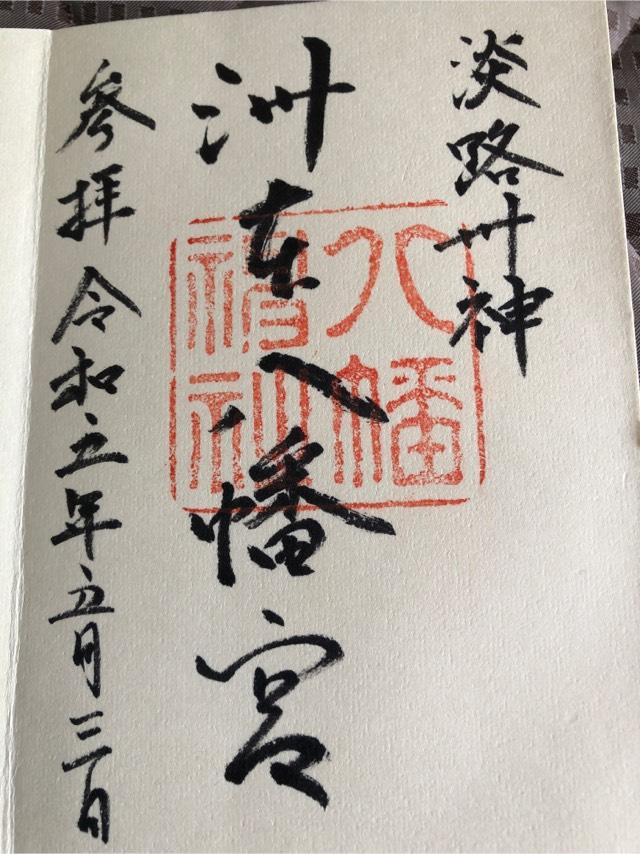 淡路卅神
洲本八幡宮
參拝 令和五年五月三日
八幡
神社